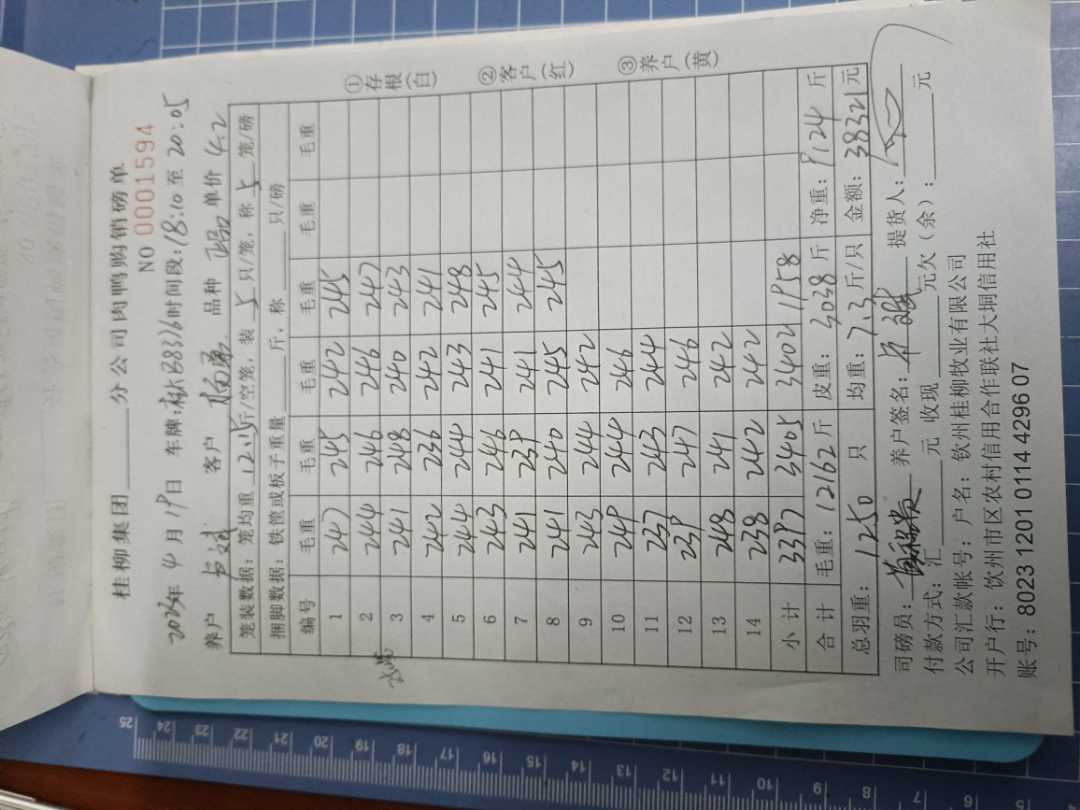 桂柳集团______分公司肉鸭购销磅单
NO 0001594
2025年4月19日 车牌:桂B8336时间段:18:10至20:05
养户 客户 杨勇 品种 单价 4.2
笼装数据:笼均重 12.15斤/空笼,装 5 只/笼,称 5 笼/磅
捆脚数据:铁筐或板子重量______斤,称______只/磅
编号 毛重 毛重 毛重 毛重 毛重
1 247 245 242 245
2 244 246 246 247
3 241 248 240 243
4 242 236 242 241
5 244 244 243 248
6 243 246 241 245
7 241 239 241 244
8 241 240 245 245
9 243 244 242
10 249 244 246
11 237 243 244
12 239 247 246
13 248 241 242
14 238 242 242
小计 3397 3405 3402 1958
合计 毛重:12162斤 皮重:3038斤 净重:9124斤
总羽重:1250 只 均重:7.3斤/只 金额:38321元
司磅员: 养户签名: 提货人:
付款方式:汇______元 收现______元欠(余):______元
公司汇款帐号:户名:钦州桂柳牧业有限公司
开户行:钦州市区农村信用合作联社大垌信用社
账号:8023 1201 0114 4296 07
①存根(白)
②客户(红)
③养户(黄)
25 24 23 22 21 20 19 18 17 16 15 14 13 12 11 10 9 8 7 6 5